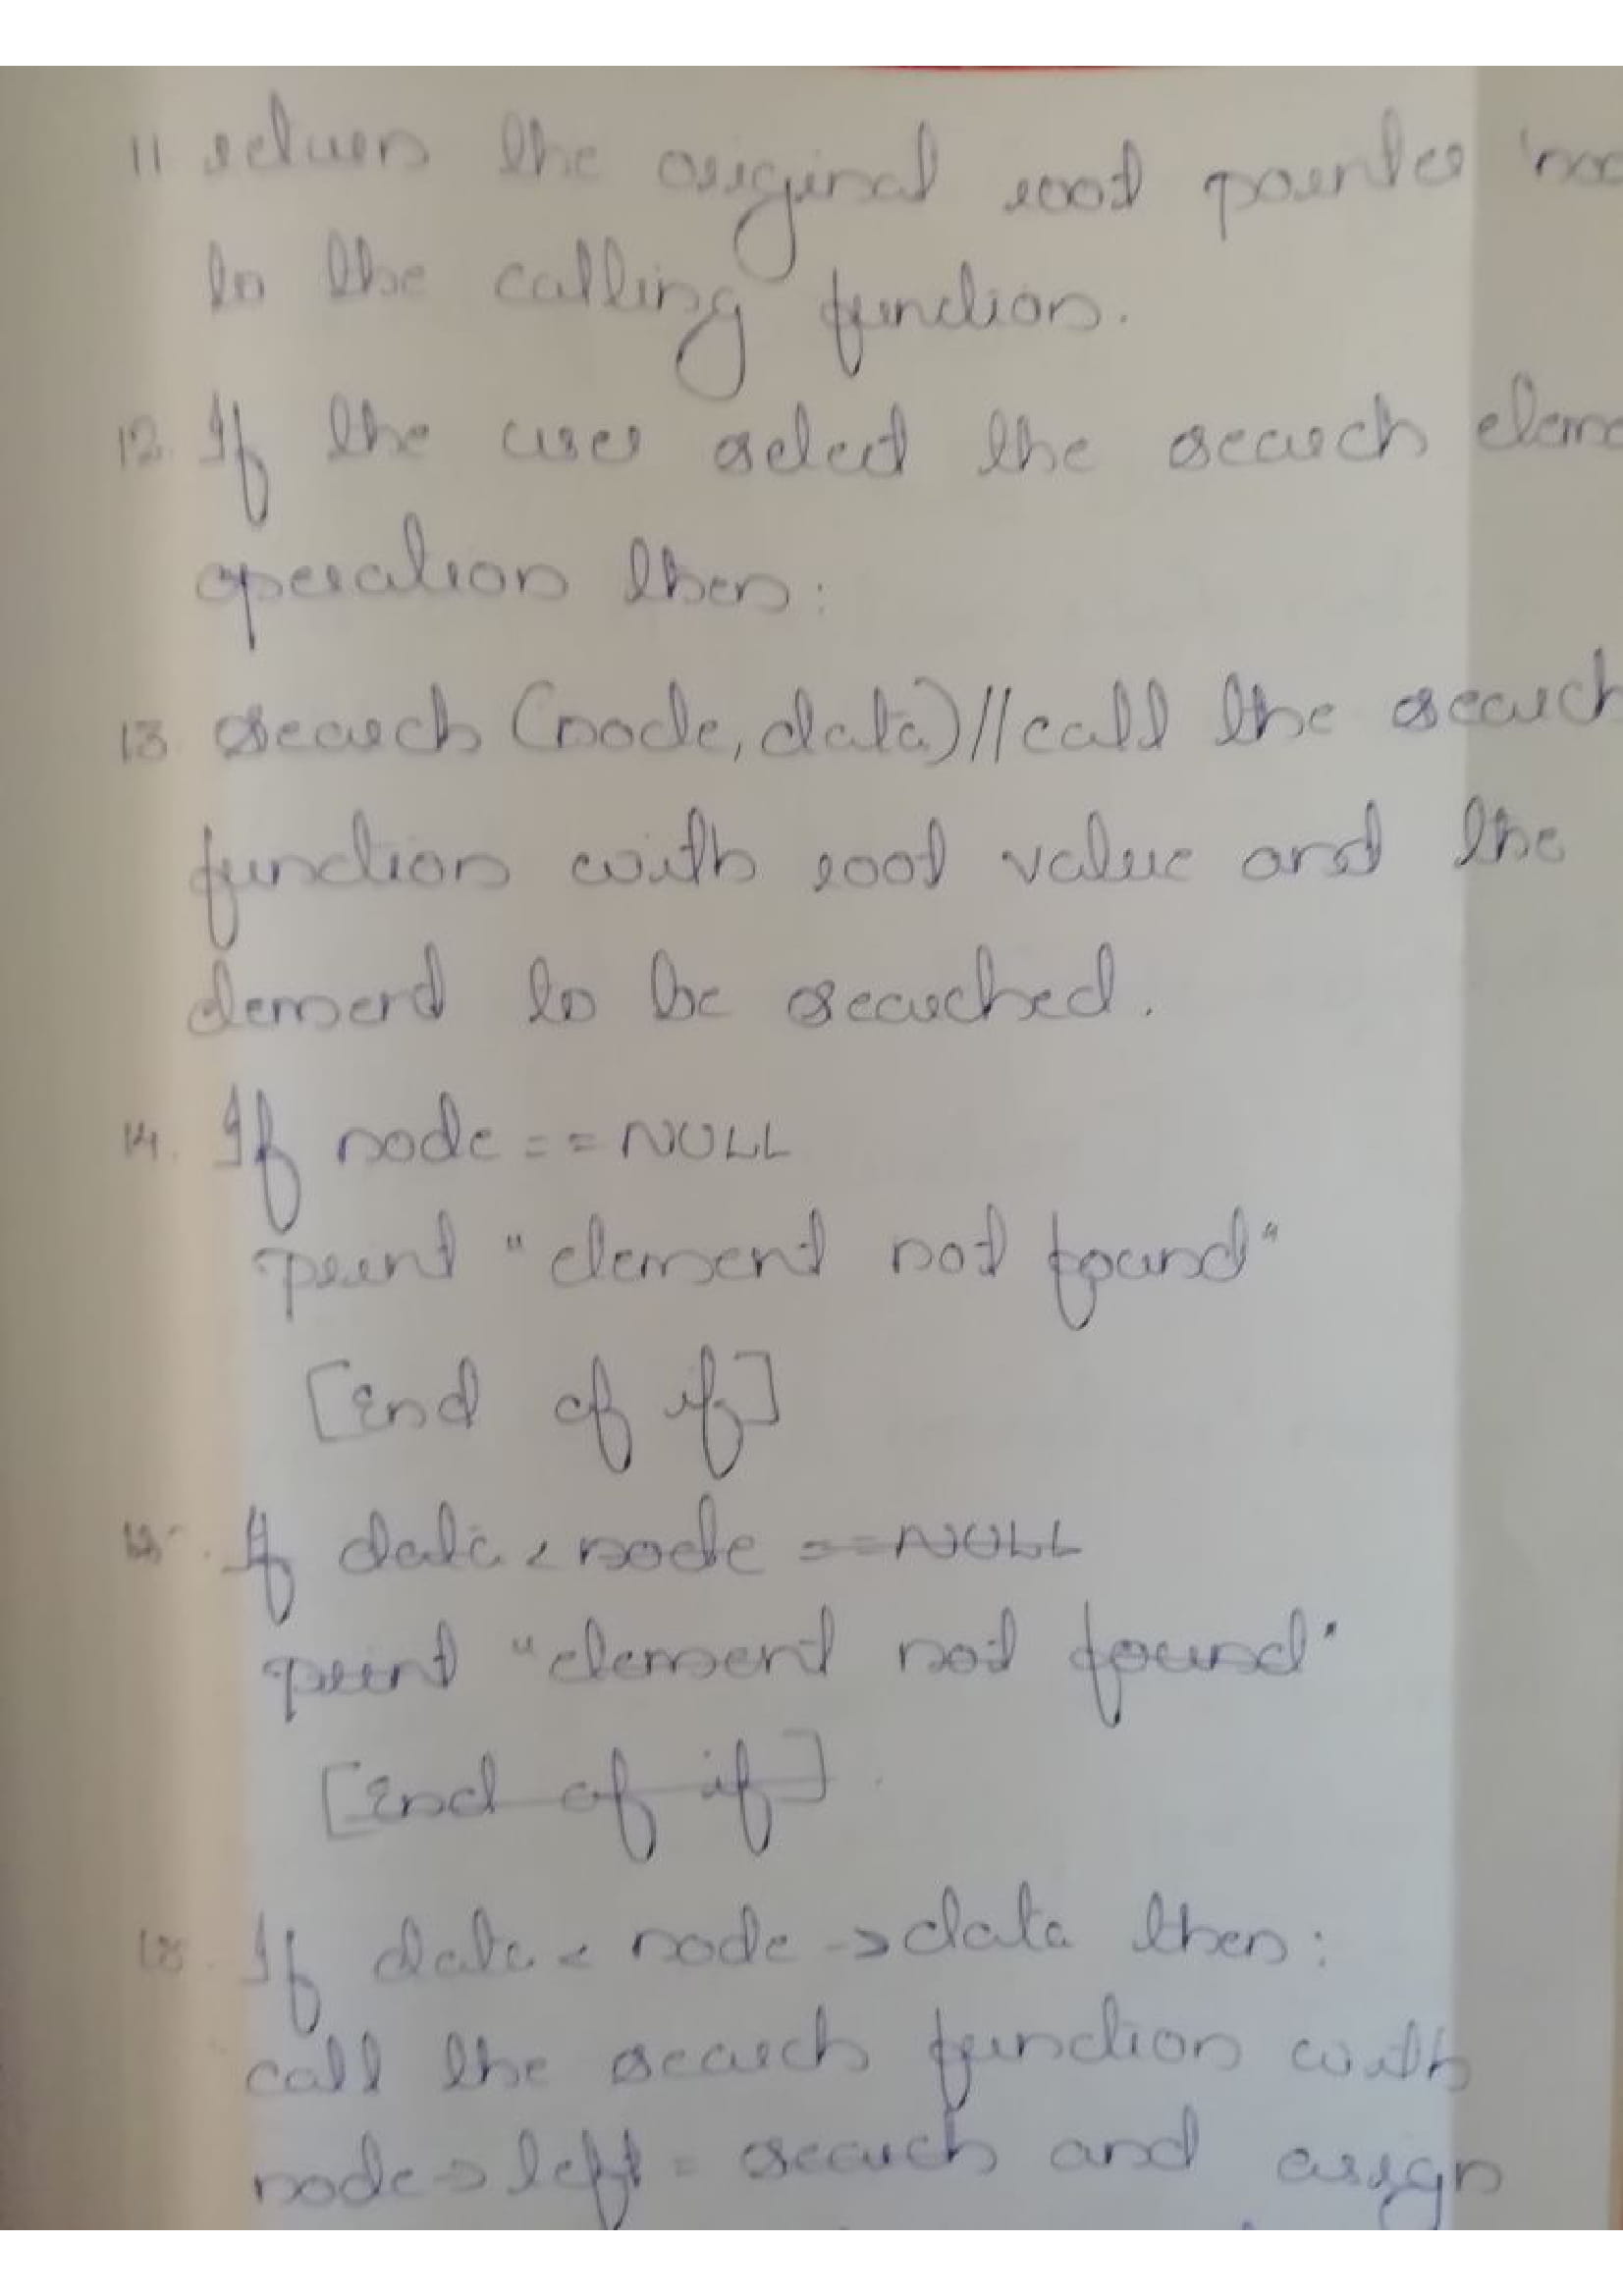 11 return the original root pointer 'noo
to the calling function.
12. If the user select the search eleme
operation then:
13. search (node, data) // call the search
function with root value and the
element to be searched.
14. If node == NULL
print "element not found"
[End of if]
15. If data < node == NULL
print "element not found"
[End of if].
If data < node -> data then:
call the search function with
node -> left = search and assign